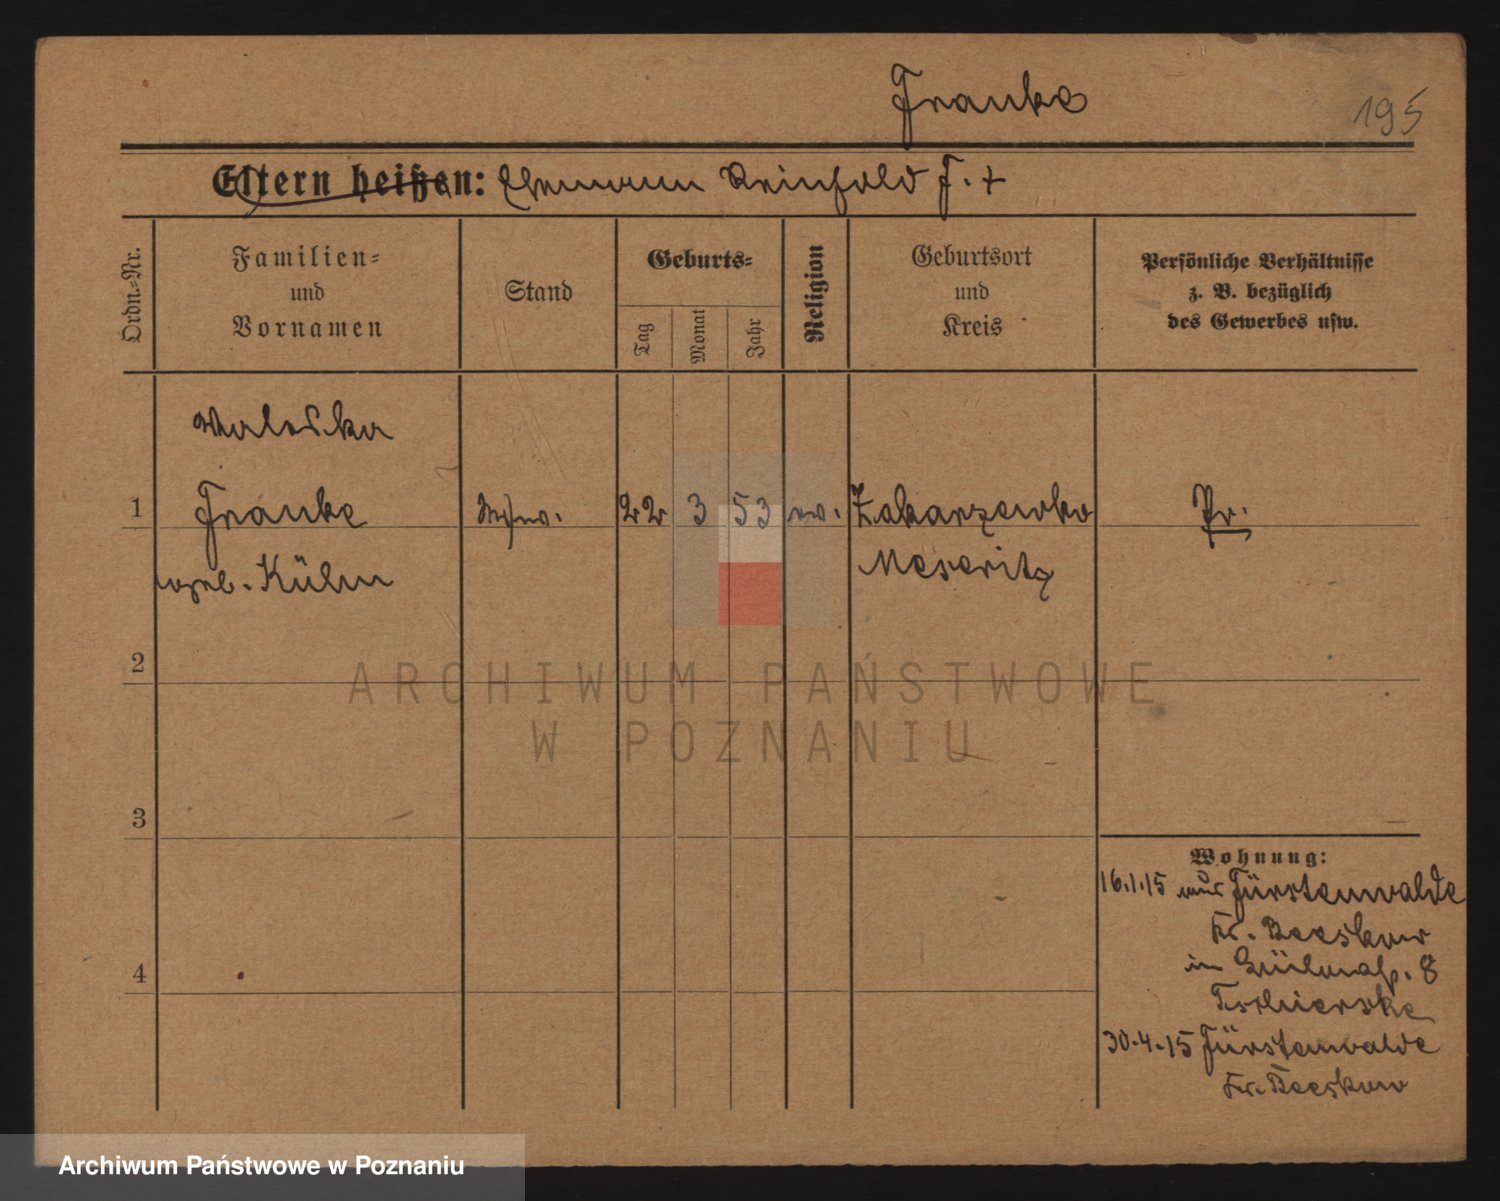 Franke
195
Eltern heißen: Ehemann Reinhold F. +
Ordn.-Nr.
Familien-
und
Vornamen
Stand
Geburts-
Tag
Monat
Jahr
Religion
Geburtsort
und
Kreis
Persönliche Verhältnisse
z. B. bezüglich
des Gewerbes usw.
Waleska
1 Franke Wwe. 22 3 53 ev. Zakarzewko Pr.
geb. Kühn Meseritz
2
3
4
ARCHIWUM PAŃSTWOWE
W POZNANIU
Wohnung:
16.1.15 aus Fürstenwalde
Kr. Beeskow
in 8
Tschierske
30.4.15 Fürstenwalde
Kr. Beeskow
Archiwum Państwowe w Poznaniu